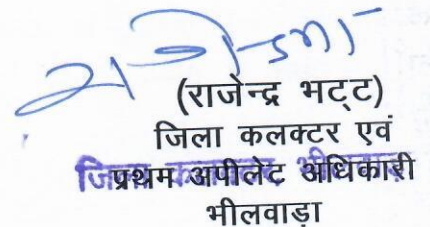 (राजेन्द्र भट्ट)
जिला कलक्टर एवं
प्रथम अपीलेट अधिकारी
भीलवाड़ा